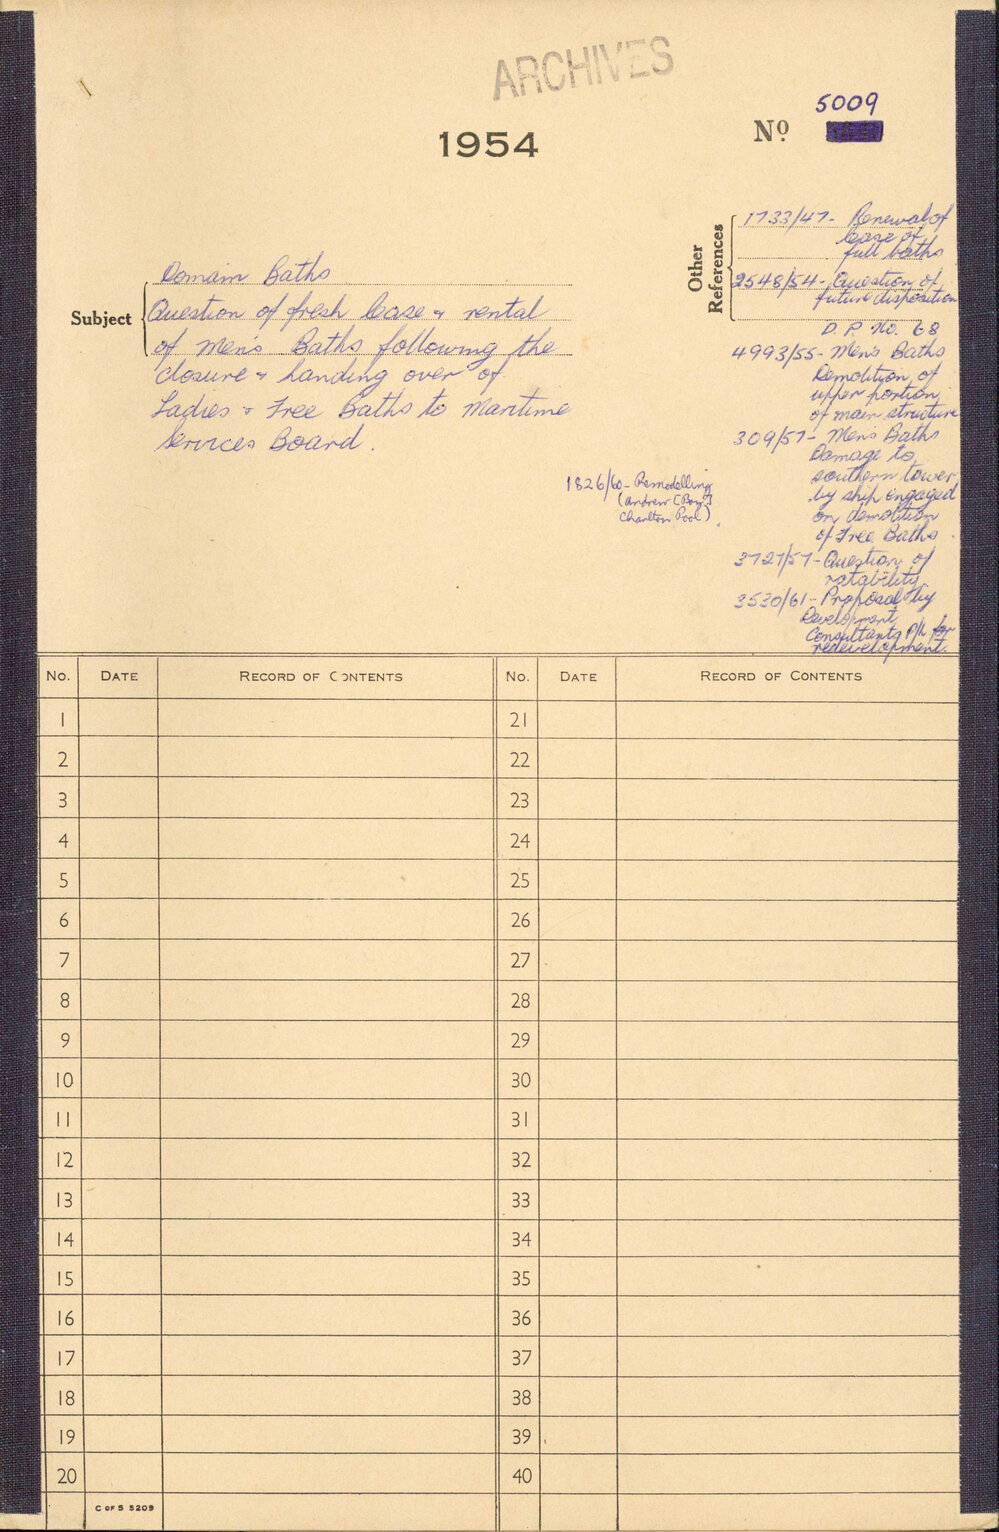 ARCHIVES
1954
No. 5009
Subject
Domain Baths
Question of fresh lease & rental
of Men's Baths following the
closure & handing over of
Ladies & Free Baths to Maritime
Services Board.
Other References
1733/47- Renewal of
lease of
full baths
2548/54- Question of
future disposition
D.P. No. 68
4993/55- Men's Baths
Demolition of
upper portion
of main structure
309/57- Men's Baths
Damage to
southern tower
by ship engaged
on demolition
of Free Baths.
3727/57- Question of
ratability
3530/61- Proposal by
Development
Consultants P/L for
redevelopment.
1826/60- Remodelling
(Andrew [Boy]
Charlton Pool).
No. DATE RECORD OF CONTENTS No. DATE RECORD OF CONTENTS
1 21
2 22
3 23
4 24
5 25
6 26
7 27
8 28
9 29
10 30
11 31
12 32
13 33
14 34
15 35
16 36
17 37
18 38
19 39
20 40
C OF S 5209